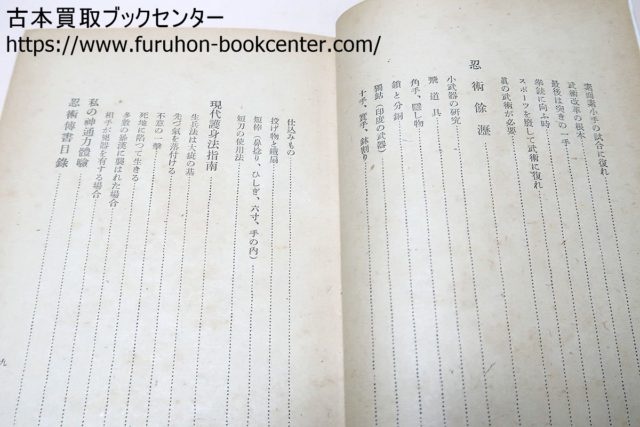 古本買取ブックセンター
https://www.furuhon-bookcenter.com/
素面素小手の試合に復れ
武術改革の根本
最後は突きの一手
拳法に向ふ時
スポーツを廢して武術に復れ
眞の武術が必要
忍術餘瀝
小武器の研究
飛道具
角手、隱し物
鎖と分銅
獨鈷(印度の武器)
十手、實手、鉢割り
仕込みもの
投げ物と鐵扇
短棒(鼻捻り、ひしぎ、六寸、手の內)
短刀の使用法
現代護身法指南
生兵法は大疵の基
先づ氣を落付ける
不意の一擊
死地に陷つて生きる
多數の暴漢に襲はれた場合
相手が兇器を有する場合
私の神通力體驗
忍術傳書目錄
九